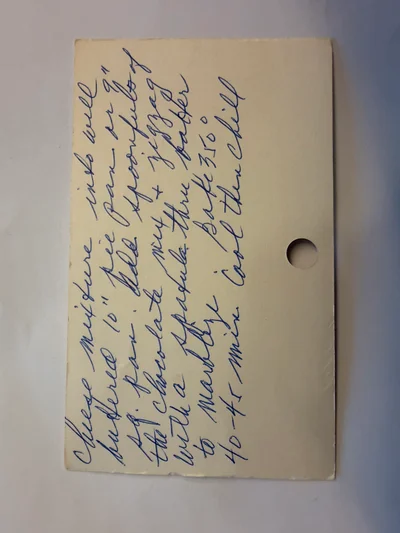 cheese mixture into well
buttered 10" pie pan or 9"
sq. pan. Add spoonfuls of
the chocolate mix & zigzag
with a spatula thru batter
to marblize. Bake 350°
40-45 min. Cool then chill